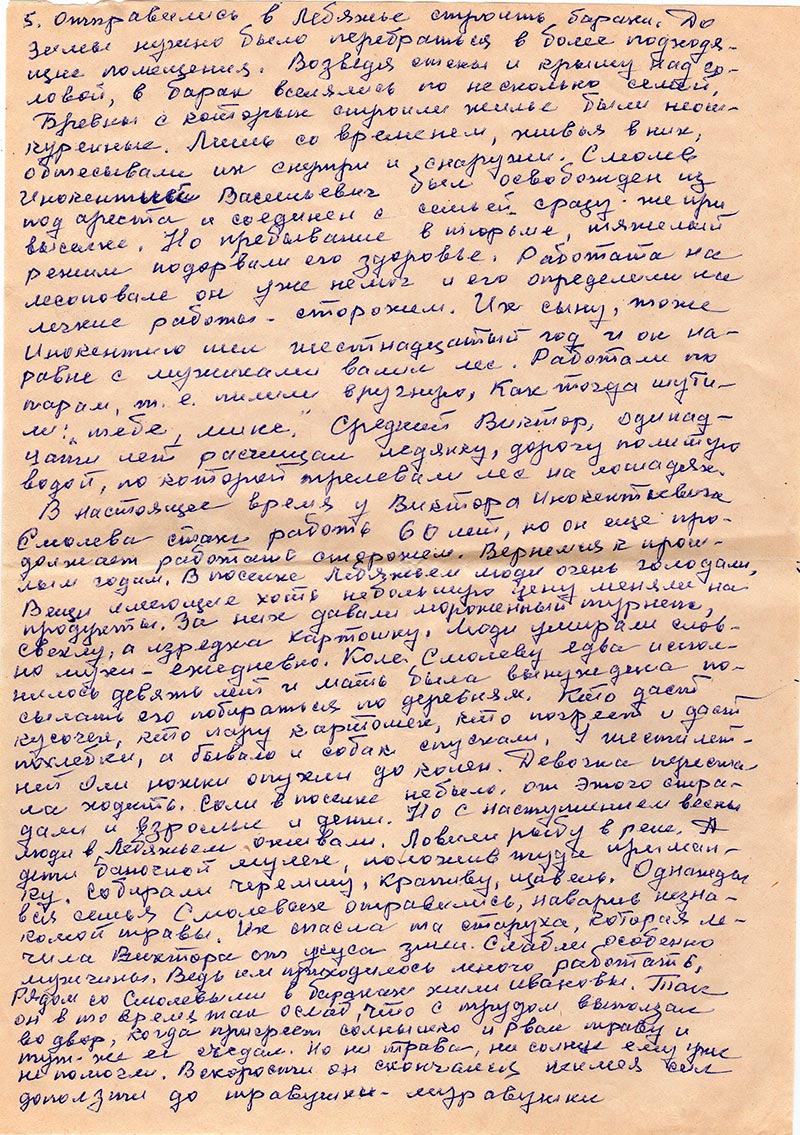 5. Отправились в Лебяжье строить бараки. До
зимы нужно было перебраться в более подходя-
щие помещения. Возведя стены и крышу над го-
ловой, в барак вселялись по несколько семей.
Бревны с которых строили жилье были неош-
куренные. Лишь со временем, живья в них,
обтесывали их снутри и снаружи. Смолев
Инокентий Васильевич был освобожден из
под ареста и соединен с семьей сразу-же при
высылке. Но пребывание в тюрьме, тяжелый
режим подорвали его здоровье. Работата на
лесоповале он уже немог и его определили на
легкие работы - сторожем. Их сыну, тоже
Инокентию шел шестнадцатый год и он на-
равне с мужиками валил лес. Работали по
парам, т.е. пилили вручную, Как тогда шути-
ли: "тебе, мине." Средний Виктор, одинад-
цати лет расчищал ледянку, дорогу политую
водой, по которой трелевали лес на лошадях.
В настоящее время у Виктора Инокентьевича
Смолева стаж работы 60 лет, но он еще про-
должает работать сторожем. Вернемся к прош-
лым годам. В поселке Лебяжьем люди очень голодали,
Вещи имеющие хоть небольшую цену меняли на
продукты. За них давали мороженный турнепс,
свеклу, а изредка картошку. Люди умирали слов-
но мухи - ежедневно. Коле Смолеву едва испол-
нилось девять лет и мать была вынуждена по-
сылать его побираться по деревням. Кто даст
кусочек, кто пару картошек, кто погреет и даст
похлебки, а бывало и собак спускали. У шестилет-
ней Оли ножки опухли до колен. Девочка переста-
ла ходить. Соли в поселке небыло. от этого стра-
дали и взрослые и дети. Но с наступлением весны
люди в Лебяжьем оживали. Ловили рыбу в реке. А
дети баночкой мулек, положив туда приман-
ку. Собирали черемшу, крапиву, щавель. Однажды
вся семья Смолевых отравились, наварив незна-
комой травы. Их спасла та старуха, которая ле-
чила Виктора от укуса змеи. Слабли особенно
мужчины. Ведь им приходилось много работать,
Рядом со Смолевыми в бараках жили Ивановы. Так
он в то время так ослаб, что с трудом выползал
во двор, когда пригреет солнышко и рвал траву и
тут-же ее съедал. Но ни трава, ни солнце ему уже
не помогли. Вскорости он скончался неимея сил
доползти до травушки-муравушки